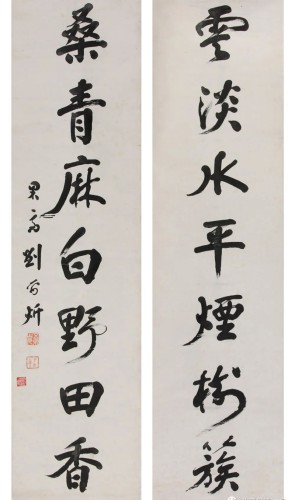 雲淡水平煙樹簇
桑青麻白野田香
果齋劉爾炘